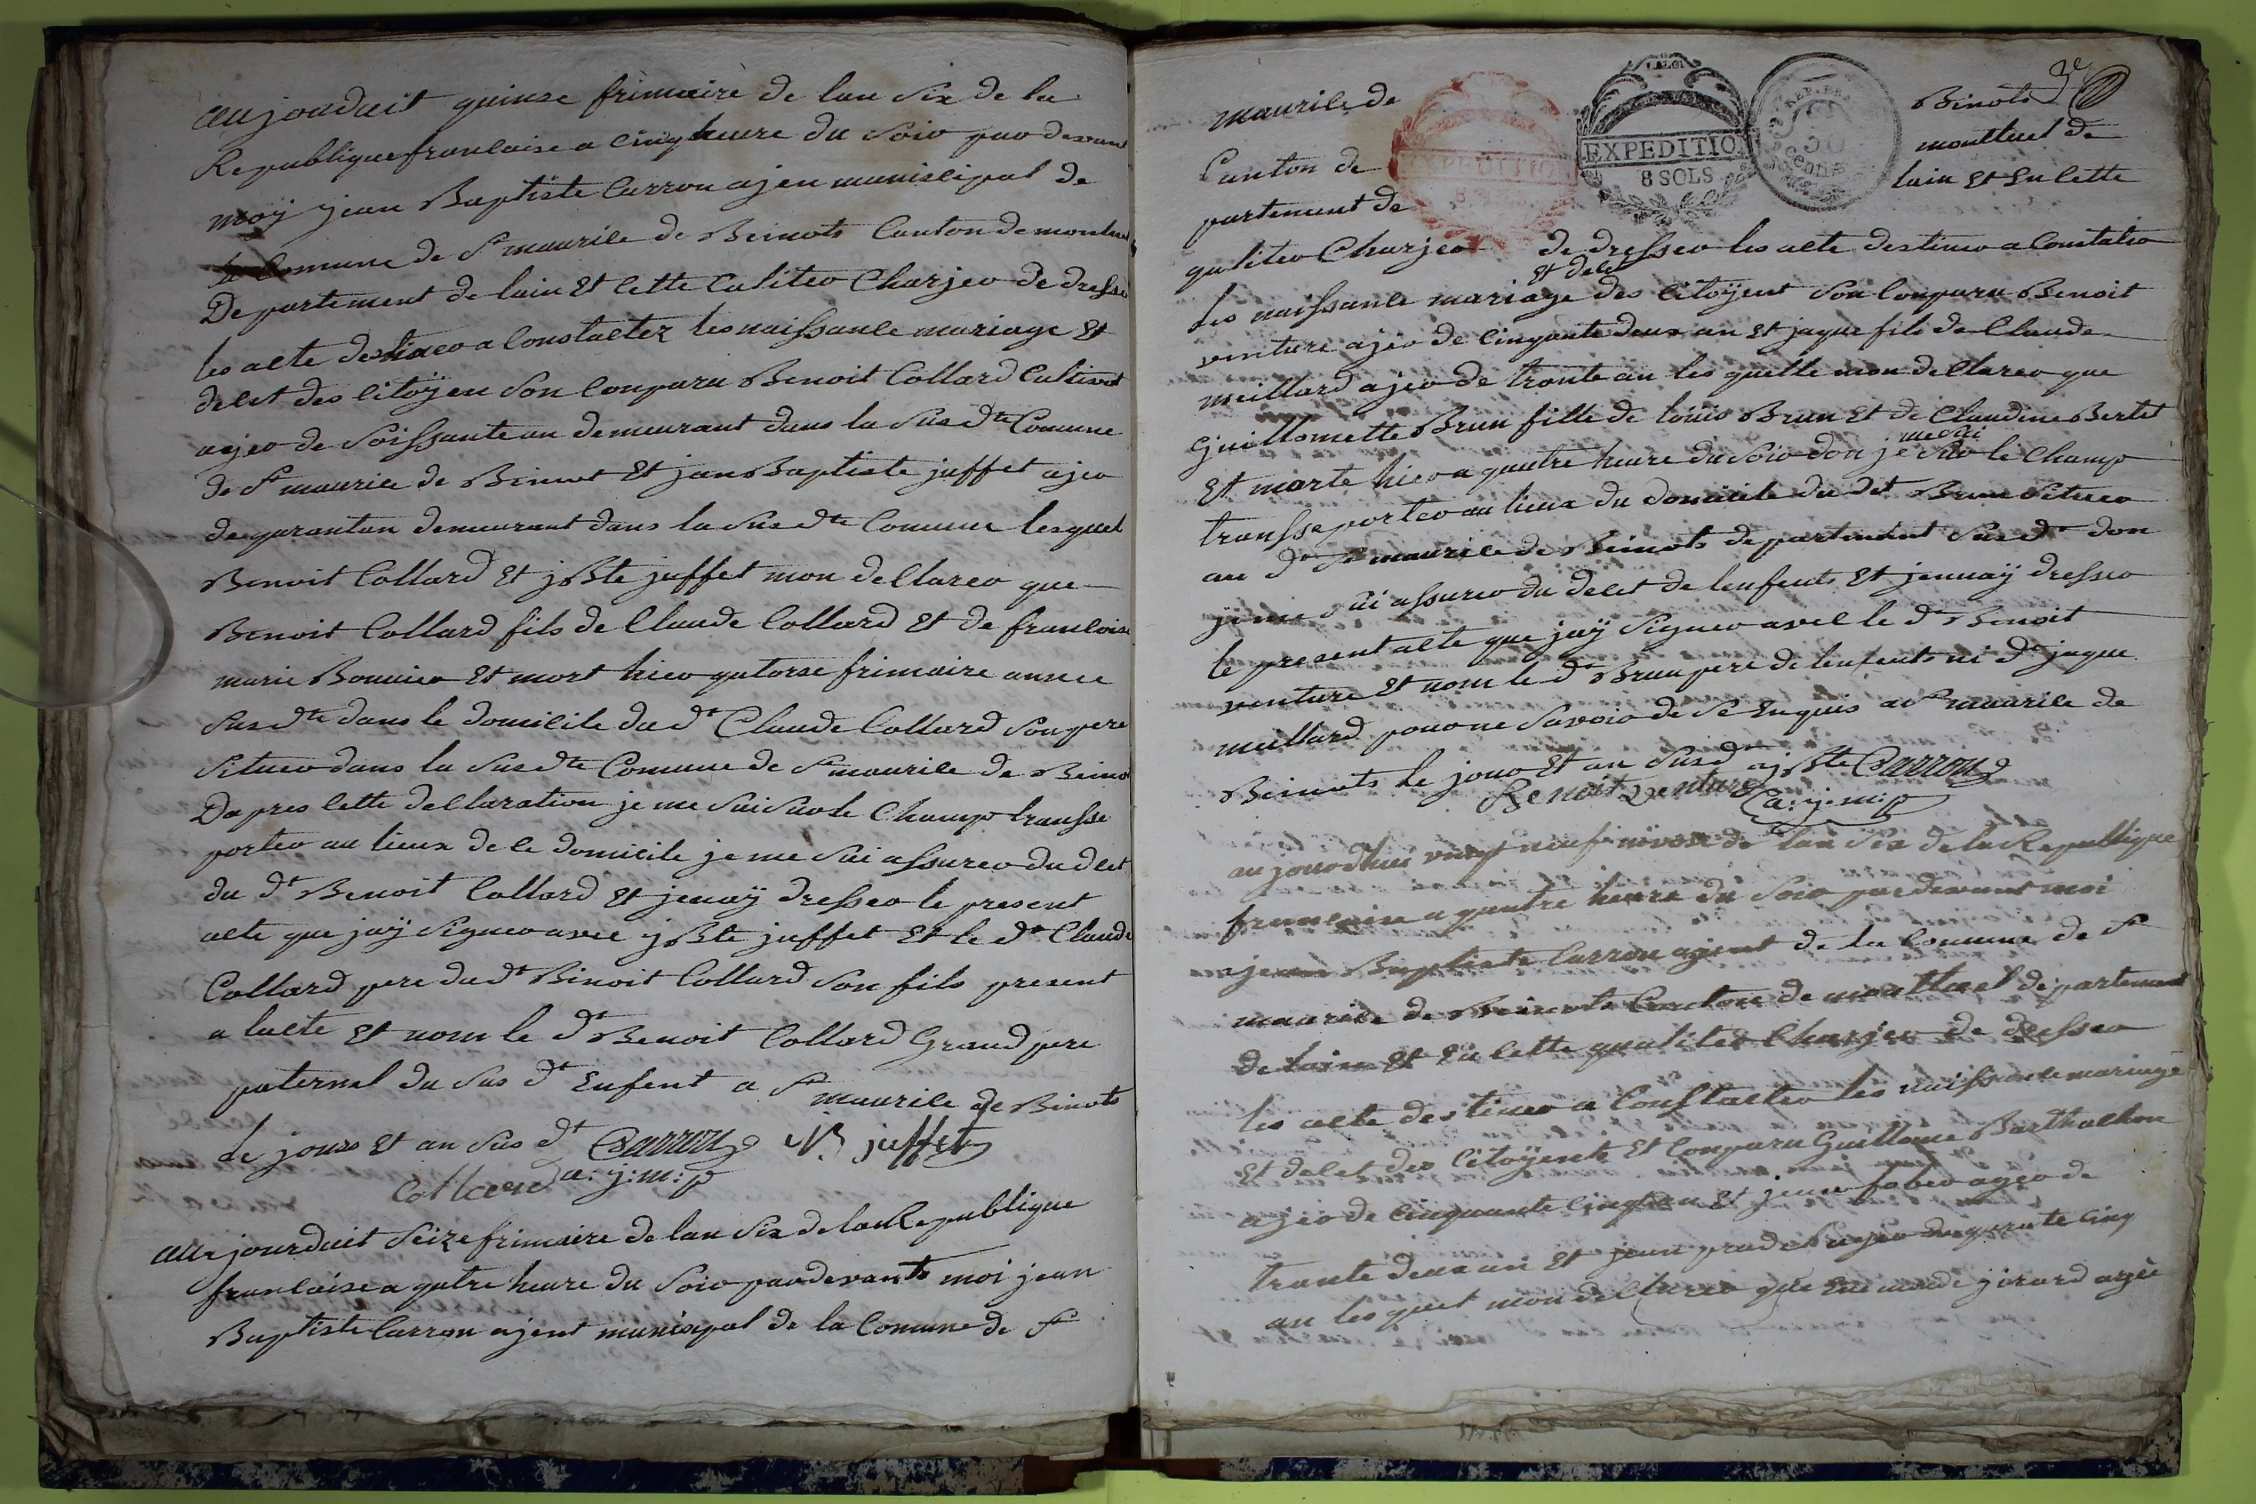 aujourduit quinse frimaire de lan Six de la
Republique francaise a cinq heure du Soir par devant
moÿ jean Baptiste Carron ajen municipal de
la Comune de St maurice de Beinots Canton de montluel
Departement de lain Et cette Caliter Charjer de dresser
les acte destiner a Constatter les naissance mariage Et
decet des citoÿen Son Conparu Benoit Collard Cultivat
ajer de Soissante an demeurant dans la Sus dte Comune
de St maurice de Beinot Et jan Baptiste juffet ajer
de garantan demeurant dans la Sus dte Comune lesquel
Benoit Collard Et jBte juffet mon decllarer que
Benoit Collard fils de Claude Collard Et de francoise
marie Bonnier Et mort hier qutorse frimaire annee
Sus dte dans le domicile du dt Claude Collard Son pere
Situer dans la Sus dte Comune de St maurice de Beinot
Dapres cette decllaration je me Sui Sur le Champ transse
porter au lieux de le domicile je me Sui assurer du dcet
du dt Benoit Collard Et jenaÿ dresser le present
acte que jaÿ Signer avec jBte juffet Et le dt Claude
Collard pere du dt Binoit Collard Son fils present
a lacte Et nom le dt Benoit Collard Grand pere
paternel du Sus dt Enfent a St maurice de Binots
le jours Et an Sus dt Carron JB juffet
Collard a:j:m:p
aujourduit Seize frimaire de lan Six de la Republique
francaise a qutre heure du Soir pardevant moi jean
Baptiste Carron ajent municipal de la Comune de St
maurice de Binots
Canton de montluel de
partement de lain Et En cette
EXPEDITION
8 SOLS
REP. FRA.
50
Cent
qualiter Charjer de dresser les acte destiner a Constater
les naissance mariage Et decet des citoÿent Son Conparu Benoit
venture ajer de Cinqante deux an Et jaque fils de Claude
meillard ajer de trante an les quelle mon decllarer que
Guillomette Brun fille de louis Brun Et de Claudine Bertet
Et morte hier a quatre heure du Soir don je me Sui Sur le Champ
transseporter au lieux du domicile du det Brun Situer
au dt St maurice de Beinots departement Sus dt don
je me Sui assurer du decet de lenfents Et jennaÿ dresser
le present acte que jaÿ Signer avec le dt Benoit
venture Et nom le dt Brun pere de lenfents ni dt jaque
meillard pour ne Savoir de Se Enquis a St maurice de
Beinots le jour Et an Susdt jBte Carron
Benoit Venture a:j:m:p
aujourdhui vingt neuf nivose de lan Six de la Republique
francaise a quatre heure du Soir par devant moi
jean Baptiste Carron ajent de la Comune de St
maurice de Beinots Canton de montluel departement
de lain Et En cette qualiter Charjer de dresser
les acte destiner a Constacter les naissance mariage
Et decet des Citoÿents Et Conparu Guillome Barthaelmi
ajer de Cinquante Cinq an Et jean faber ager de
trante deux an Et jean prade ajer de qurante Cinq
an les quel mon decllarer que Enemonde jirard agee